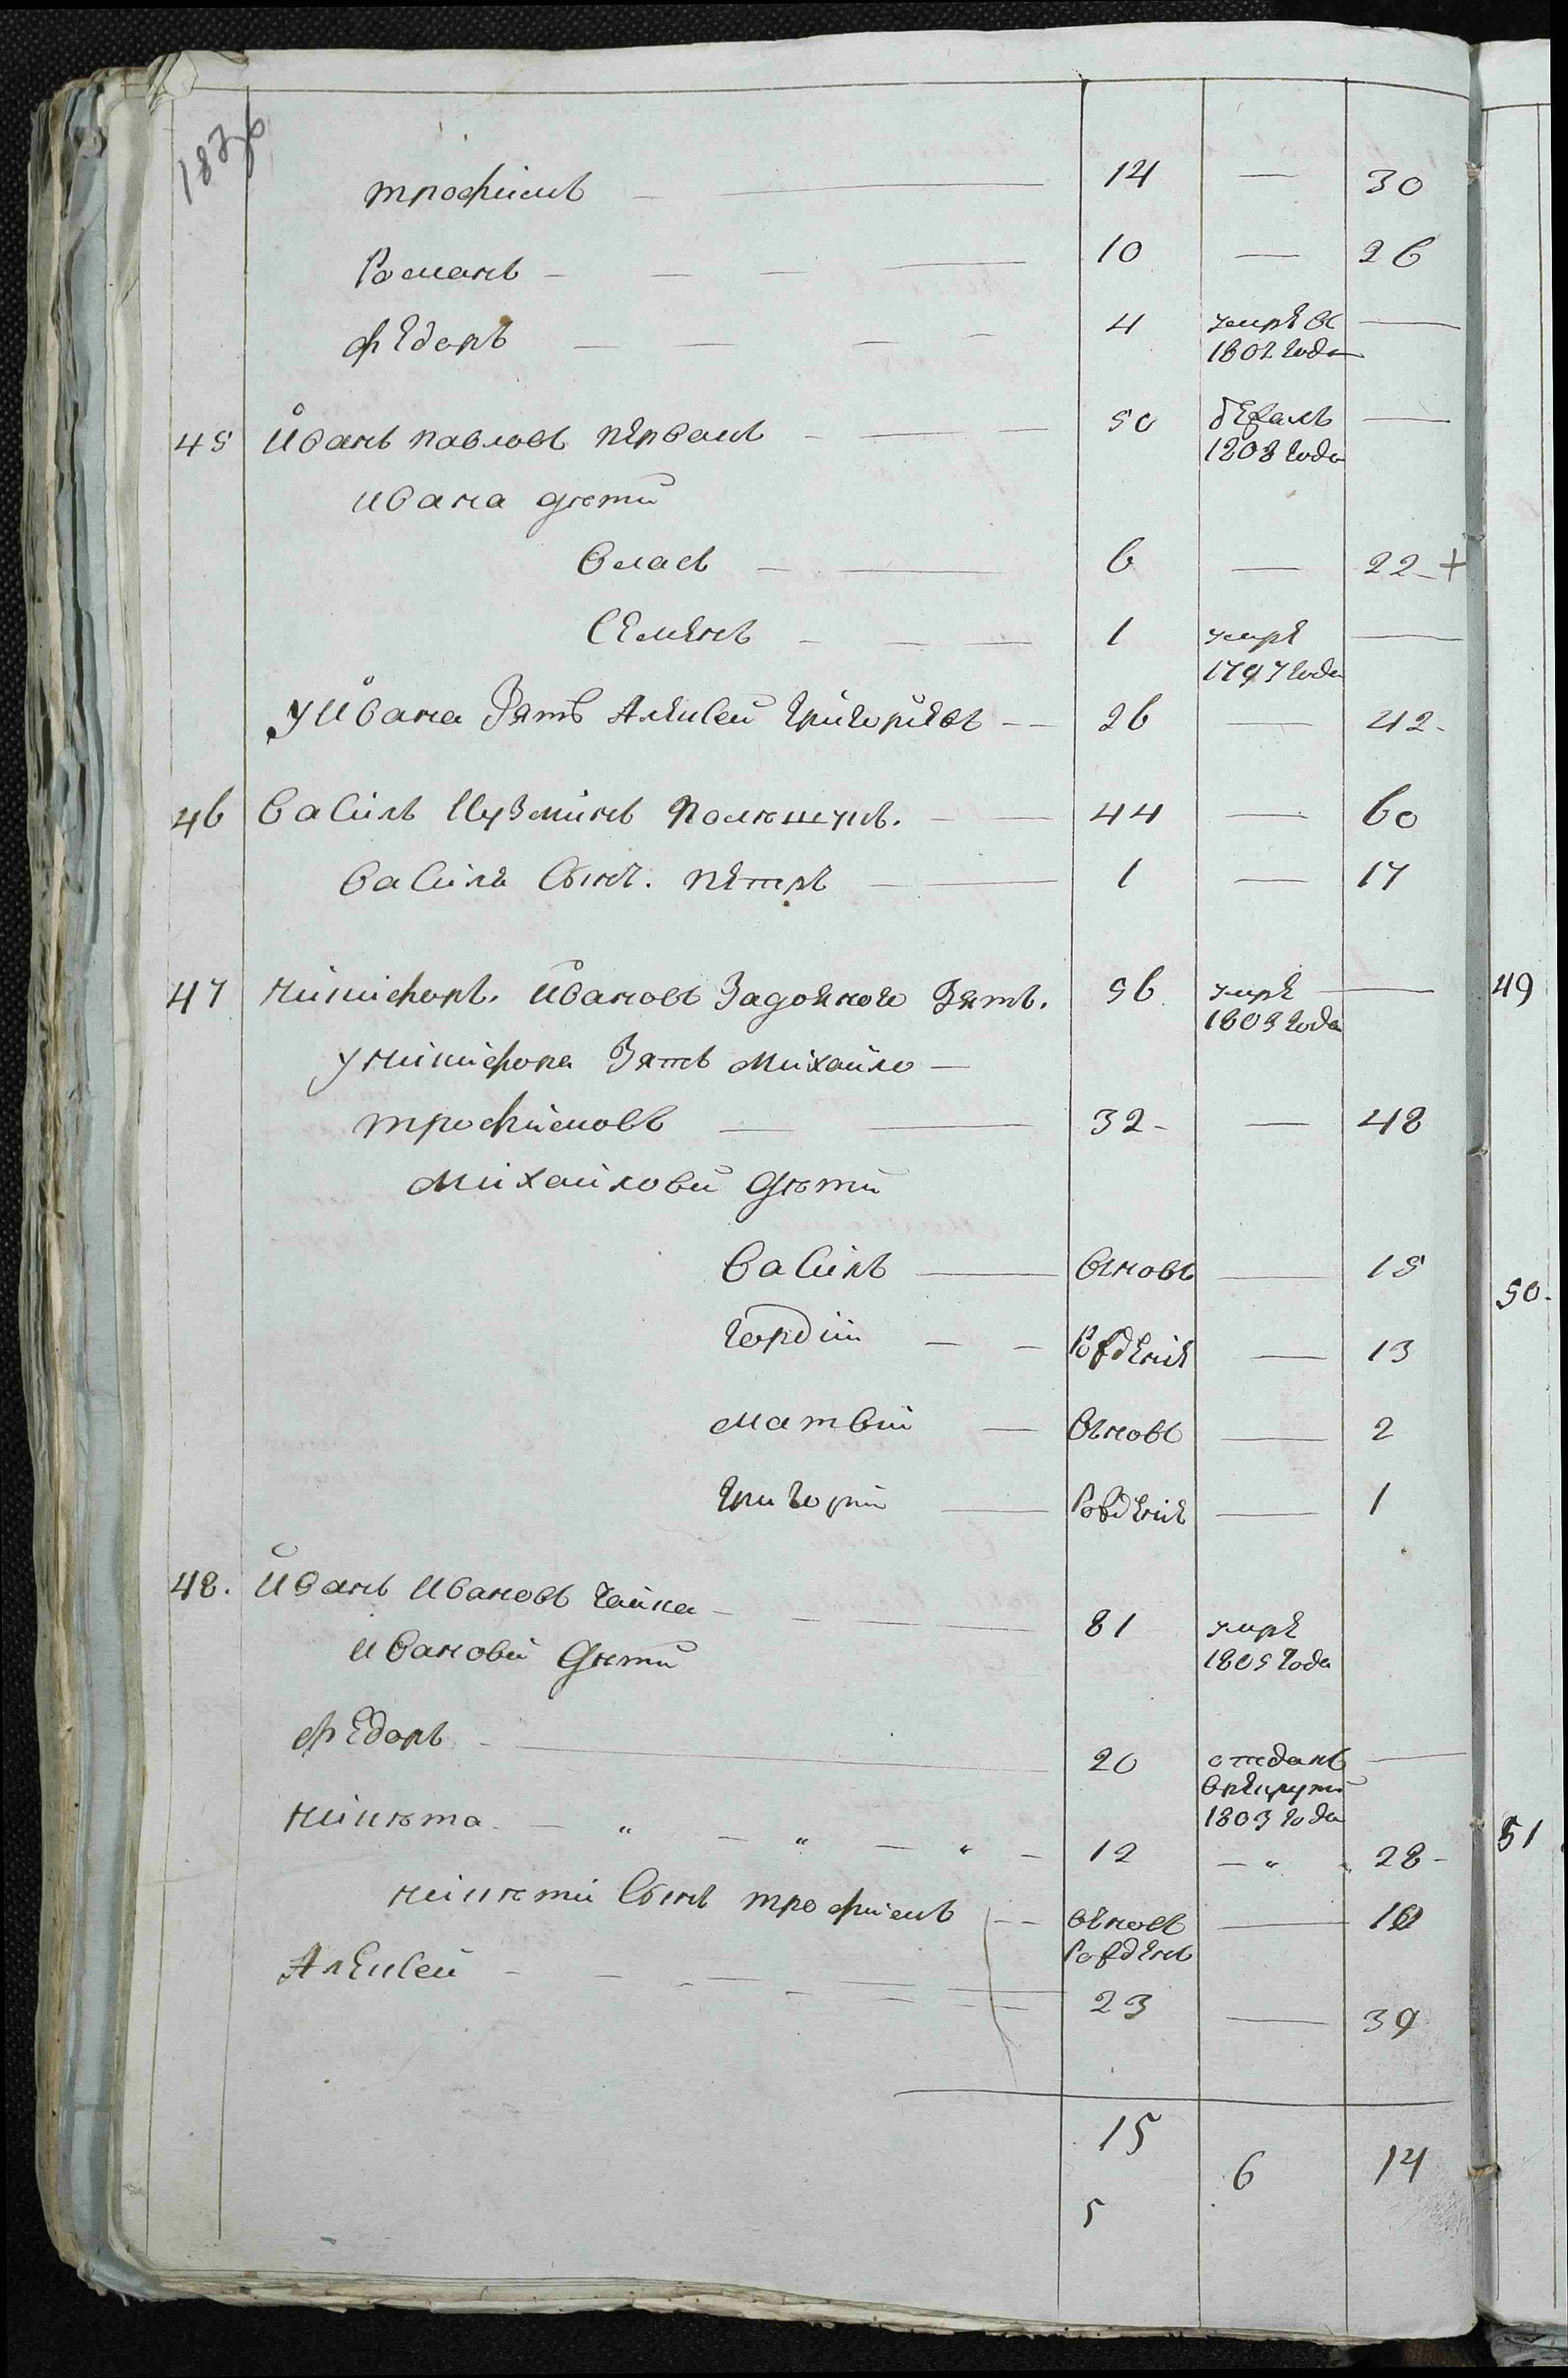 трофимъ 14 — 30
Романъ 10 — 26
федоръ 4 умре въ —
1802 года
45 Иванъ павловъ первакъ 50 бежалъ —
1808 года
ивана дѣти
Власъ 6 — 22 +
Семенъ 1 умре —
1797 года
у ивана Зять Алексей григорiевъ 26 — 42
46 Василь Кузминъ 44 — 60
Василя Сынъ петръ 1 — 17
47 никифоръ ивановъ Зять 56 умре —
1809 года
у никифора Зять михаило
трофимовъ 32 — 48
михаиловы дѣти
Василь вновь — 15
гордiй Рожденiе — 13
матвiй вновь — 2
григорiй Рожденiе — 1
48. Иванъ ивановъ чайка 81 умре
1805 года
ивановы дѣти
федоръ 20 отданъ —
Врекруты
1803 года
никѣта 12 — 28
никѣты Сынъ трофимъ вновь —
Рожденъ
Алексей 23 — 39
15 6 14
5
49
50.
51